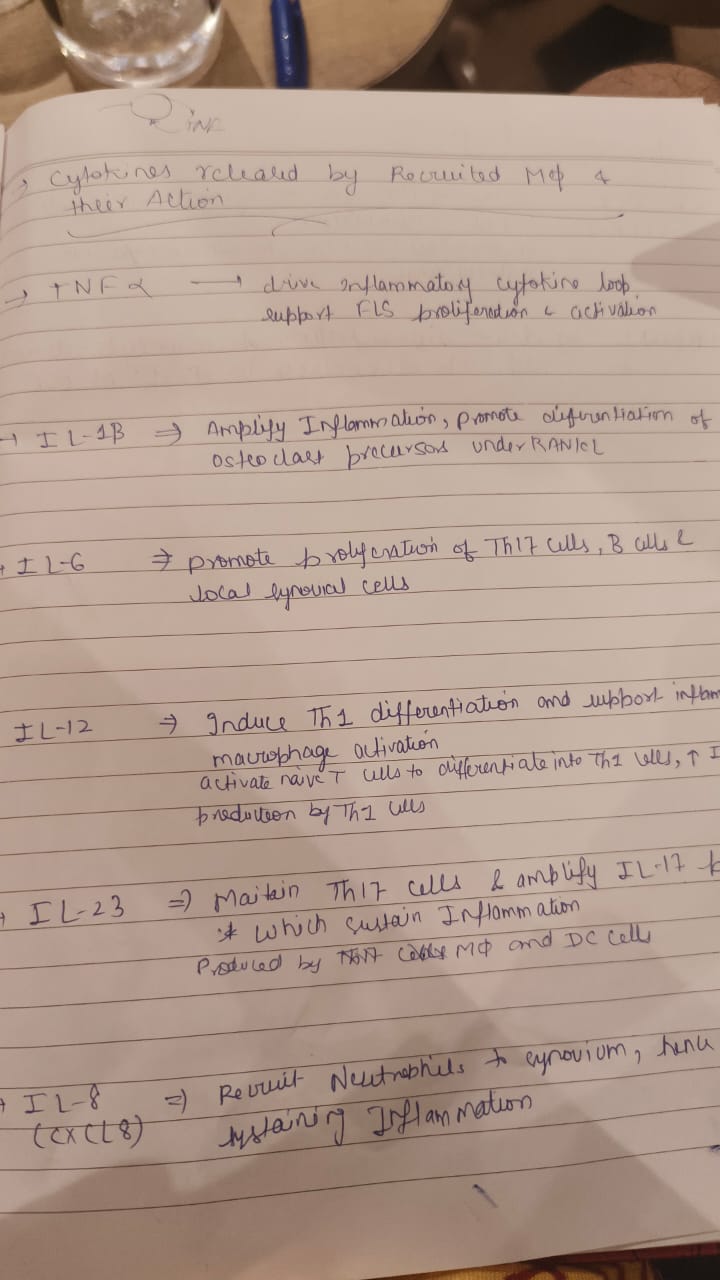 → Cytokines released by Recruited Mφ &
their Action
→ TNFα → drive inflammatory cytokine loop,
support FLS proliferation & activation
→ IL-1β ⇒ Amplify Inflammation, promote differentiation of
osteoclast precursors under RANKL
→ IL-6 ⇒ promote proliferation of Th17 cells, B cells &
local synovial cells
IL-12 ⇒ Induce Th1 differentiation and support inflam
macrophage activation
activate naive T cells to differentiate into Th1 cells, ↑ I
production by Th1 cells
→ IL-23 ⇒ Maitain Th17 cells & amplify IL-17
which sustain Inflammation
Produced by Mφ and DC cells
→ IL-8 ⇒ Recruit Neutrophils to synovium, hence
(CXCL8) systaining Inflammation